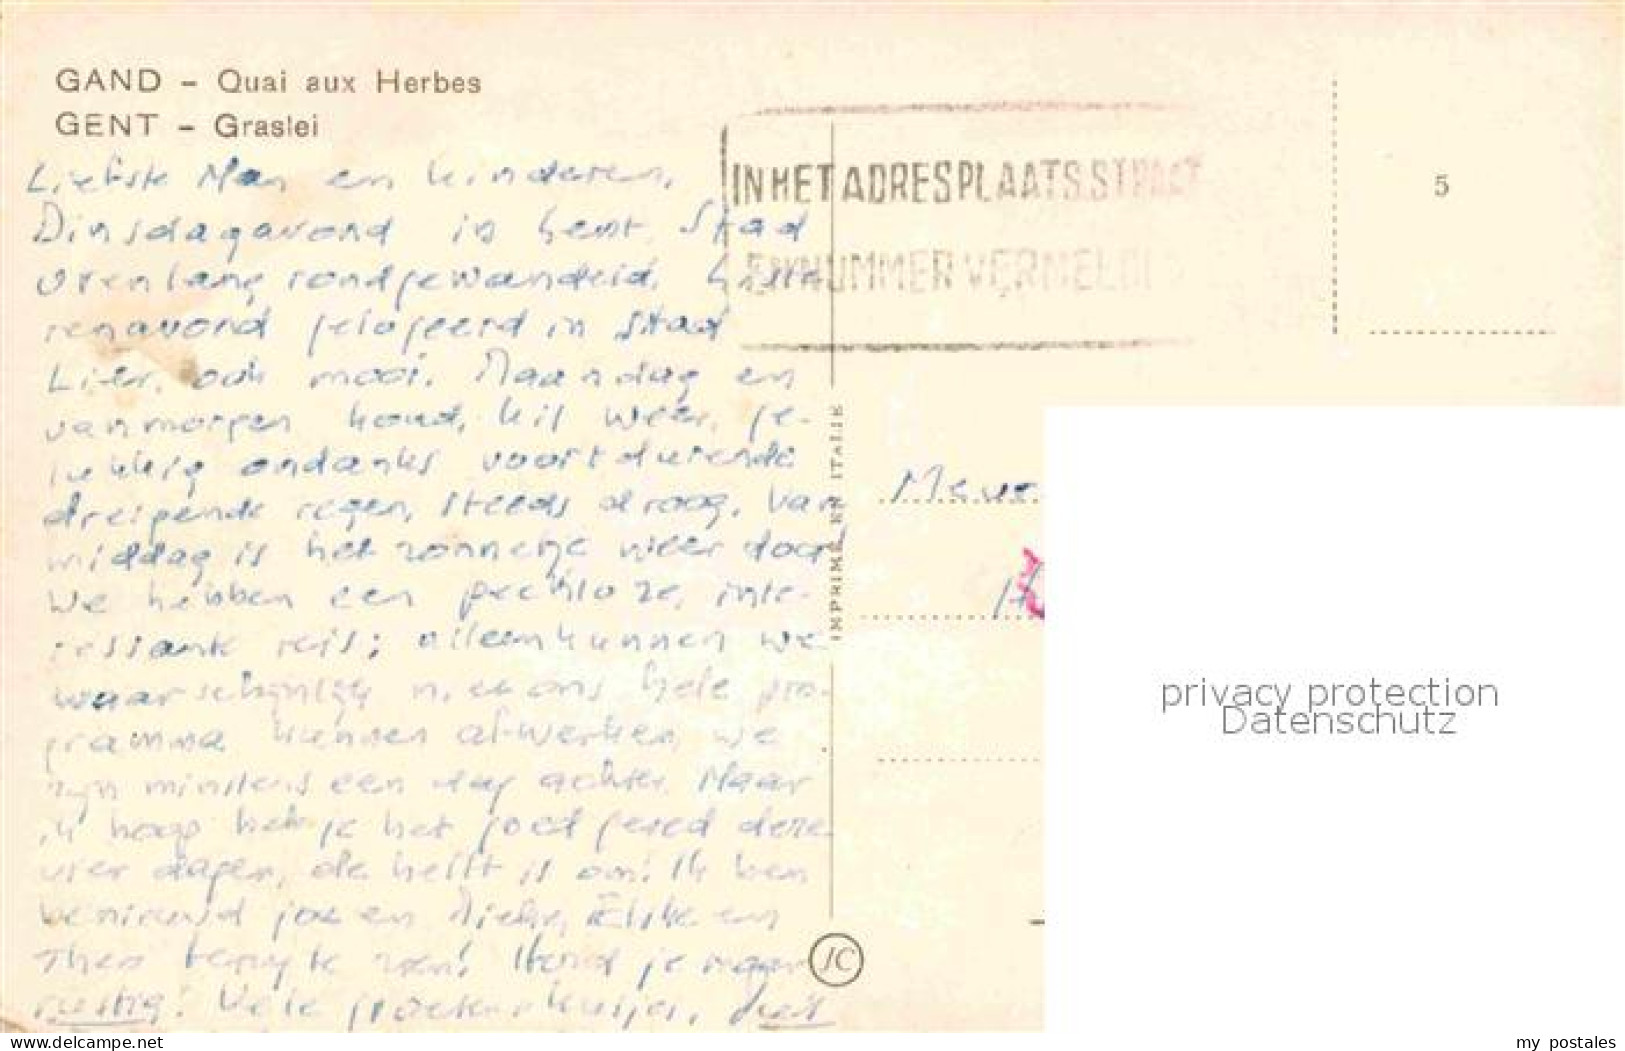 GAND – Quai aux Herbes
GENT – Graslei
Liefste Man en kinderen,
Dinsdagavond in Gent. Stad
urenlang rondgewandeld. Giste-
renavond gelogeerd in stad
Lier, ook mooi. Maandag en
vanmorgen koud, kil weer, ge-
lukkig ondanks voortdurende
dreigende regen, steeds droog. Van
middag is het zonnetje weer door
We hebben een pechloze, inte-
ressante reis; alleen kunnen we
waarschijnlijk niet ons hele pro-
gramma kunnen afwerken, we
zijn minstens een dag achter. Maar
ik hoop dat je het goed gered deze
vier dagen, de helft is om! Ik ben
benieuwd jou en Elske en
Theo terug te zien! Houd je maar
rustig! Vele groeten kusjes,
IN HET ADRES PLAATS.STRAAT
EN NUMMER VERMELDEN
5
IMPRIMÉ EN ITALIE
Mevr
17
JC
privacy protection
Datenschutz
www.ansichtskartenversand.com
my_postales